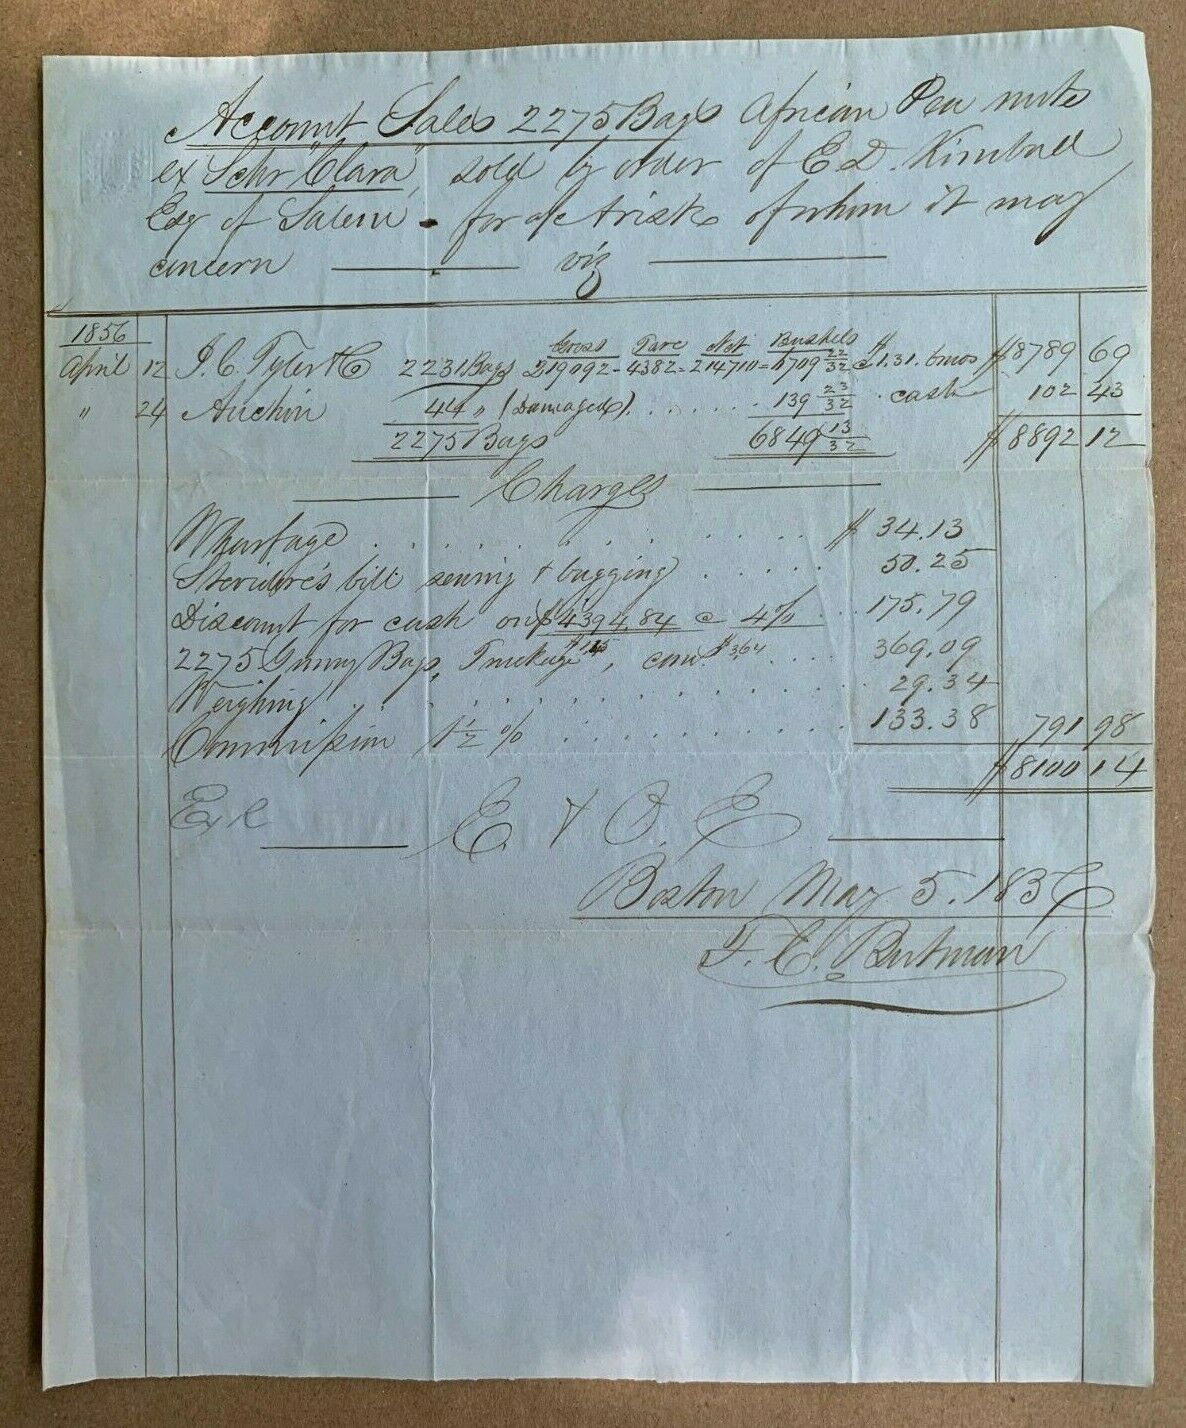 Account Sales 2275 Bags African Pea nuts
ex Schr "Clara", sold by order of E D. Kimball
Esq of Salem - for a/c & risk of whom it may
concern viz
1856
Gross Tare Net Bushels
April 12 J. C. Tyler & Co 2231 Bags 219092 - 4382 = 214710 = 6709 22/32 @ $1.31. 6mos $8789 69
" 24 Auction 44 " (Damaged) . . . . . . 139 23/32 . cash 102 43
2275 Bags 6849 13/32 $8892 12
Charges
Wharfage . . . . . . . . . . $ 34.13
Stevidore's bill sewing & bagging . . . . . 50.25
Discount for cash on $4394,84 @ 4% . . . 175.79
2275 Gunny Bags, Truckage, . . . . 369.09
Weighing . . . . . . . . . . . . . 29.34
Commission 1 1/2 % . . . . . . . . . . 133.38 791 98
$8100 14
E & O. E
Boston May 5. 1856
F. E. Butman